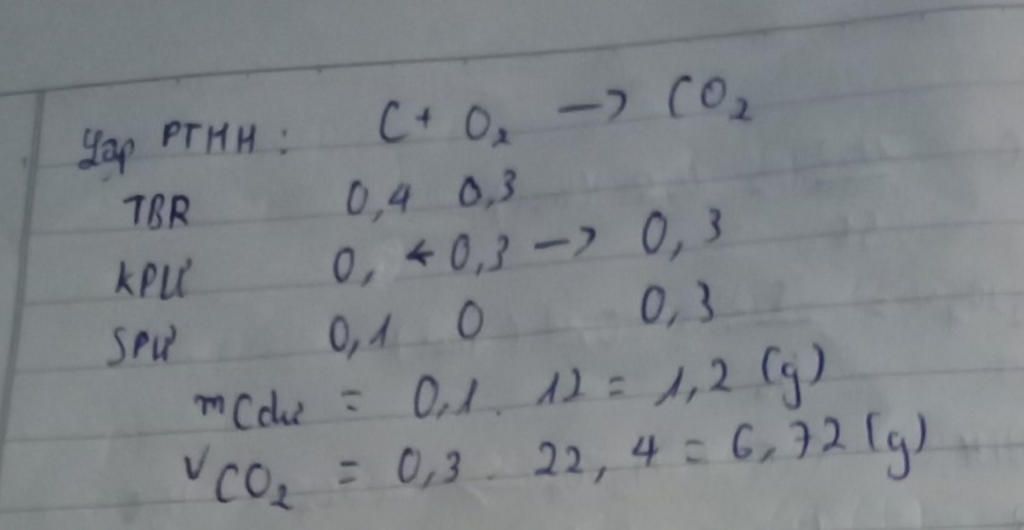 Lập PTHH : C + O₂ → CO₂
TBR 0,4 0,3
KPƯ 0, ← 0,3 → 0,3
SPƯ 0,1 0 0,3
mCdư = 0,1 . 12 = 1,2 (g)
VCO₂ = 0,3 . 22,4 = 6,72 (g)